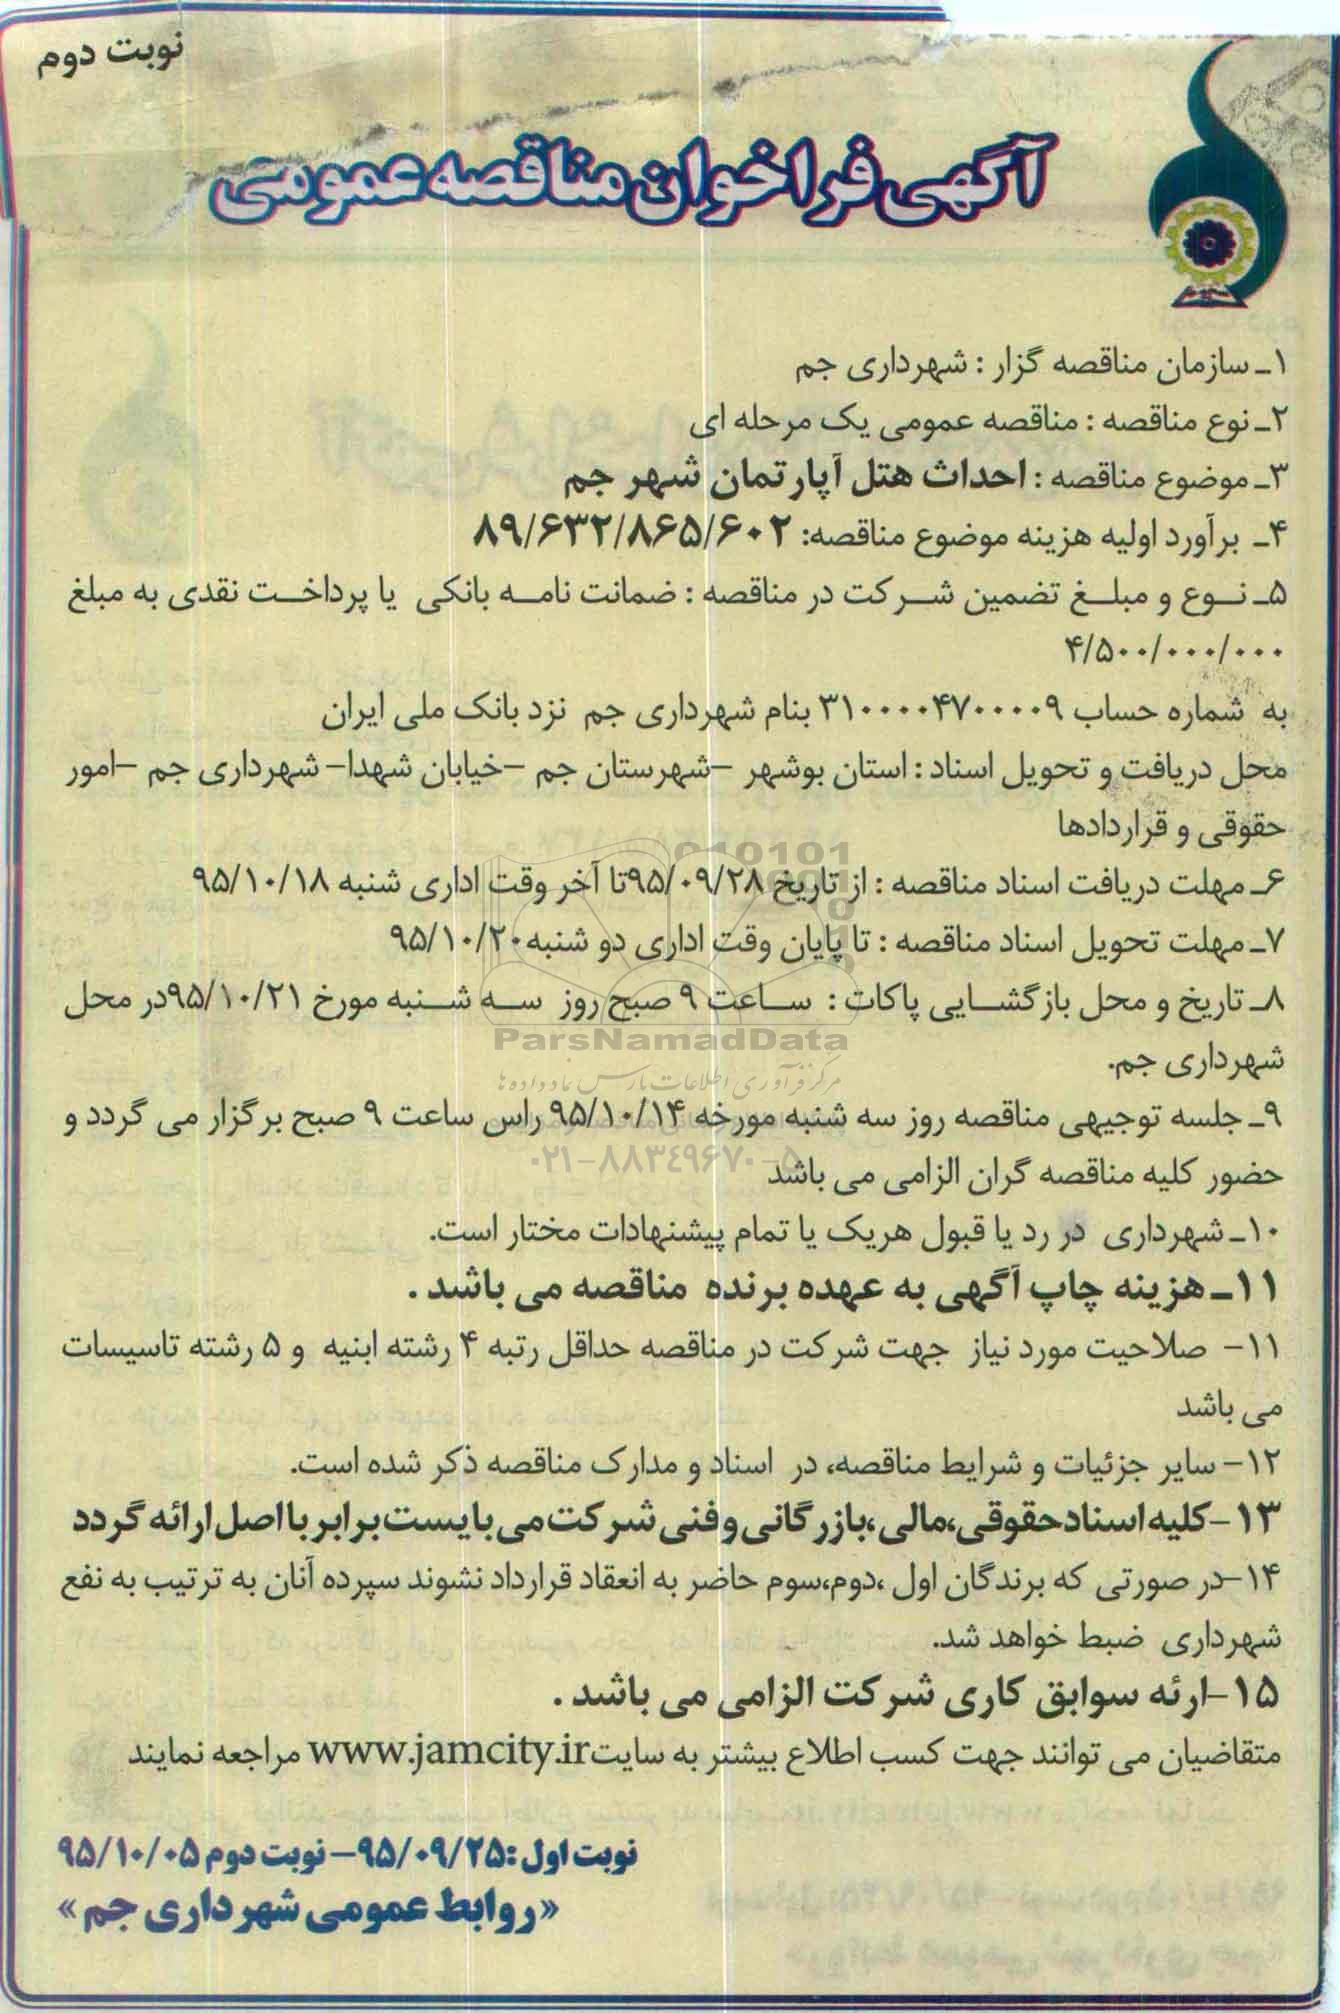 نوبت دوم
آگهی فراخوان مناقصه عمومی
۱ـ سازمان مناقصه گزار : شهرداری جم
۲ـ نوع مناقصه : مناقصه عمومی یک مرحله ای
۳ـ موضوع مناقصه : احداث هتل آپارتمان شهر جم
۴ـ برآورد اولیه هزینه موضوع مناقصه: ۸۹/۶۳۲/۸۶۵/۶۰۲
۵ـ نوع و مبلغ تضمین شرکت در مناقصه : ضمانت نامه بانکی یا پرداخت نقدی به مبلغ
۴/۵۰۰/۰۰۰/۰۰۰
به شماره حساب ۳۱۰۰۰۰۴۷۰۰۰۰۹ بنام شهرداری جم نزد بانک ملی ایران
محل دریافت و تحویل اسناد : استان بوشهر –شهرستان جم –خیابان شهدا– شهرداری جم –امور
حقوقی و قراردادها
۶ـ مهلت دریافت اسناد مناقصه : از تاریخ ۹۵/۰۹/۲۸تا آخر وقت اداری شنبه ۹۵/۱۰/۱۸
۷ـ مهلت تحویل اسناد مناقصه : تا پایان وقت اداری دو شنبه۹۵/۱۰/۲۰
۸ـ تاریخ و محل بازگشایی پاکات : ساعت ۹ صبح روز سه شنبه مورخ ۹۵/۱۰/۲۱در محل
شهرداری جم.
۹ـ جلسه توجیهی مناقصه روز سه شنبه مورخه ۹۵/۱۰/۱۴ راس ساعت ۹ صبح برگزار می گردد و
حضور کلیه مناقصه گران الزامی می باشد
۱۰ـ شهرداری در رد یا قبول هریک یا تمام پیشنهادات مختار است.
۱۱ـ هزینه چاپ آگهی به عهده برنده مناقصه می باشد .
۱۱- صلاحیت مورد نیاز جهت شرکت در مناقصه حداقل رتبه ۴ رشته ابنیه و ۵ رشته تاسیسات
می باشد
۱۲- سایر جزئیات و شرایط مناقصه، در اسناد و مدارک مناقصه ذکر شده است.
۱۳-کلیه اسناد حقوقی،مالی،بازرگانی و فنی شرکت می بایست برابر با اصل ارائه گردد
۱۴-در صورتی که برندگان اول ،دوم،سوم حاضر به انعقاد قرارداد نشوند سپرده آنان به ترتیب به نفع
شهرداری ضبط خواهد شد.
۱۵-ارئه سوابق کاری شرکت الزامی می باشد .
متقاضیان می توانند جهت کسب اطلاع بیشتر به سایتwww.jamcity.ir مراجعه نمایند
نوبت اول :۹۵/۰۹/۲۵- نوبت دوم ۹۵/۱۰/۰۵
«روابط عمومی شهرداری جم »
ParsNamadData
مرکز فرآوری اطلاعات پارس نماد داده ها
۰۲۱-۸۸۳۴۹۶۷۰-۵